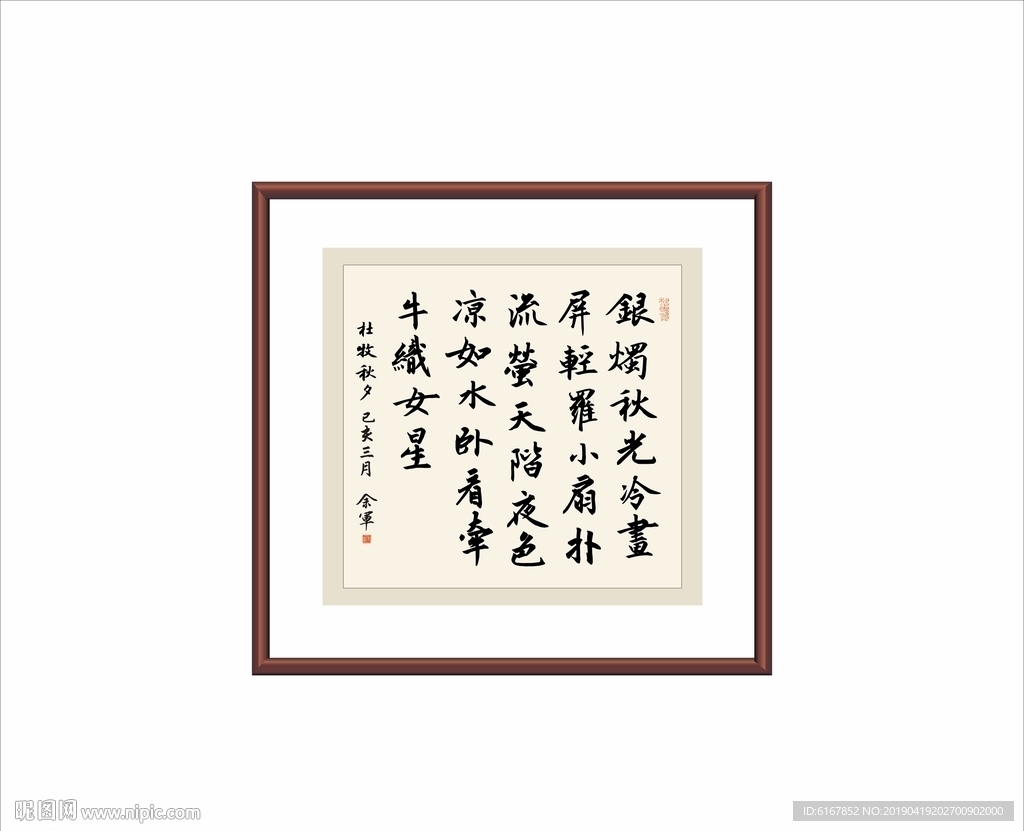 銀燭秋光冷畫
屏輕羅小扇扑
流螢天階夜色
凉如水卧看牽
牛織女星
杜牧秋夕 己亥三月 余軍
昵图网 www.nipic.com
ID:6167852 NO:20190419202700902000